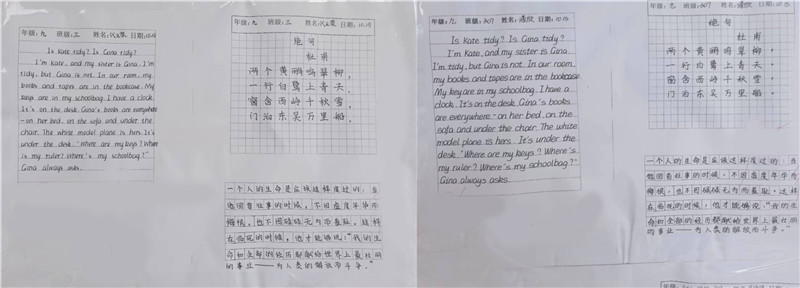 年级:九 班级:三
日期:10.15
Is Kate tidy? Is Gina tidy?
I'm Kate, and my sister is Gina. I'm
tidy, but Gina is not. In our room, my
books and tapes are in the bookcase. My
keys are in my schoolbag. I have a clock.
It's on the desk. Gina's books are everywhere
- on her bed, on the sofa and under the
chair. The white model plane is hers. It's
under the desk. "Where are my keys? Where
is my ruler? Where's my schoolbag?"
Gina always asks.
年级:九 班级:三
日期:10.15
绝句
杜甫
两个黄鹂鸣翠柳,
一行白鹭上青天。
窗含西岭千秋雪,
门泊东吴万里船。
一个人的生命是应该这样度过的:当
他回首往事的时候,不因虚度年华而
悔恨,也不因碌碌无为而羞耻。这样
在临死的时候,他才能够说:“我的生
命和全部的经历都献给世界上最壮丽
的事业——为人类的解放而斗争。”
年级:九 班级:607
日期:10.15
Is Kate tidy? Is Gina tidy?
I'm Kate, and my sister is Gina.
I'm tidy, but Gina is not. In our room,
my books and tapes are in the bookcase.
My key are in my schoolbag. I have a
clock. It's on the desk. Gina's books
are everywhere - on her bed, on the
sofa and under the chair. The white
model plane is hers. It's under the
desk. "Where are my keys? Where's
my ruler? Where's my schoolbag?"
Gina always asks.
班级:607
日期:10.15
绝句
杜甫
两个黄鹂鸣翠柳,
一行白鹭上青天。
窗含西岭千秋雪,
门泊东吴万里船。
一个人的生命是应该这样度过的:当
他回首往事的时候,不因虚度年华而
悔恨,也不因碌碌无为而羞耻。这样
在临死的时候,他才能够说:“我的生
命和全部的经历都献给世界上最壮丽
的事业——为人类的解放而斗争。”